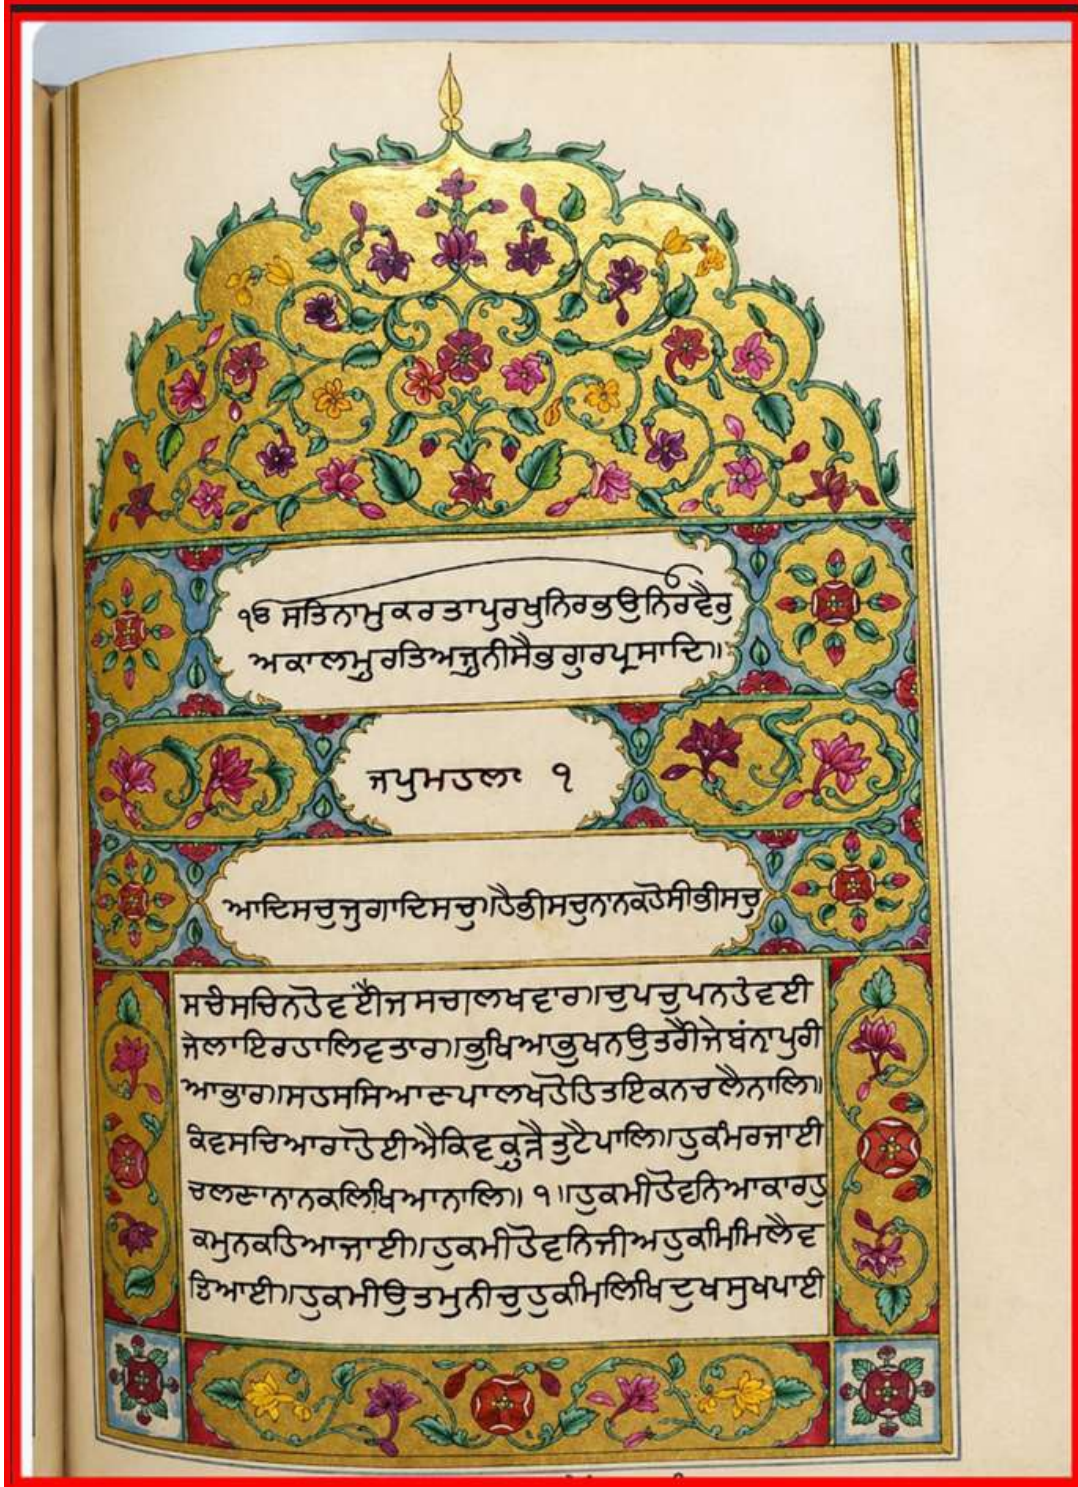 ੧ੳ ਸਤਿਨਾਮੁਕਰਤਾਪੁਰਖੁਨਿਰਭਉਨਿਰਵੈਰੁ
ਅਕਾਲਮੂਰਤਿਅਜੂਨੀਸੈਭਗੁਰਪ੍ਰਸਾਦਿ॥
ਜਪੁਮਹਲਾ ੧
ਆਦਿਸਚੁਜੁਗਾਦਿਸਚੁ॥ਹੈਭੀਸਚੁਨਾਨਕਹੋਸੀਭੀਸਚੁ
ਸਚੈਸਚਿਨਹੋਵਈਜਸਚਾਲਖਵਾਰ॥ਚੁਪਚੁਪਨਹੋਵਈ
ਜੇਲਾਇਰਹਾਲਿਵਤਾਰ॥ਭੁਖਿਆਭੁਖਨਉਤਰੈਜੇਬੰਨਾਪੁਰੀ
ਆਭਾਰ॥ਸਹਸਸਿਆਣਪਾਲਖਹੋਹਿਤਇਕਨਚਲੈਨਾਲਿ॥
ਕਿਵਸਚਿਆਰਾਹੋਈਐਕਿਵਕੂੜੈਤੁਟੈਪਾਲਿ॥ਹੁਕਮਿਰਜਾਈ
ਚਲਣਾਨਾਨਕਲਿਖਿਆਨਾਲਿ॥੧॥ਹੁਕਮੀਹੋਵਨਿਆਕਾਰਹੁ
ਕਮੁਨਕਹਿਆਜਾਈ॥ਹੁਕਮੀਹੋਵਨਿਜੀਅਹੁਕਮਿਮਿਲੈਵ
ਡਿਆਈ॥ਹੁਕਮੀਉਤਮੁਨੀਚੁਹੁਕਮਿਲਿਖਿਦੁਖਸੁਖਪਾਈ